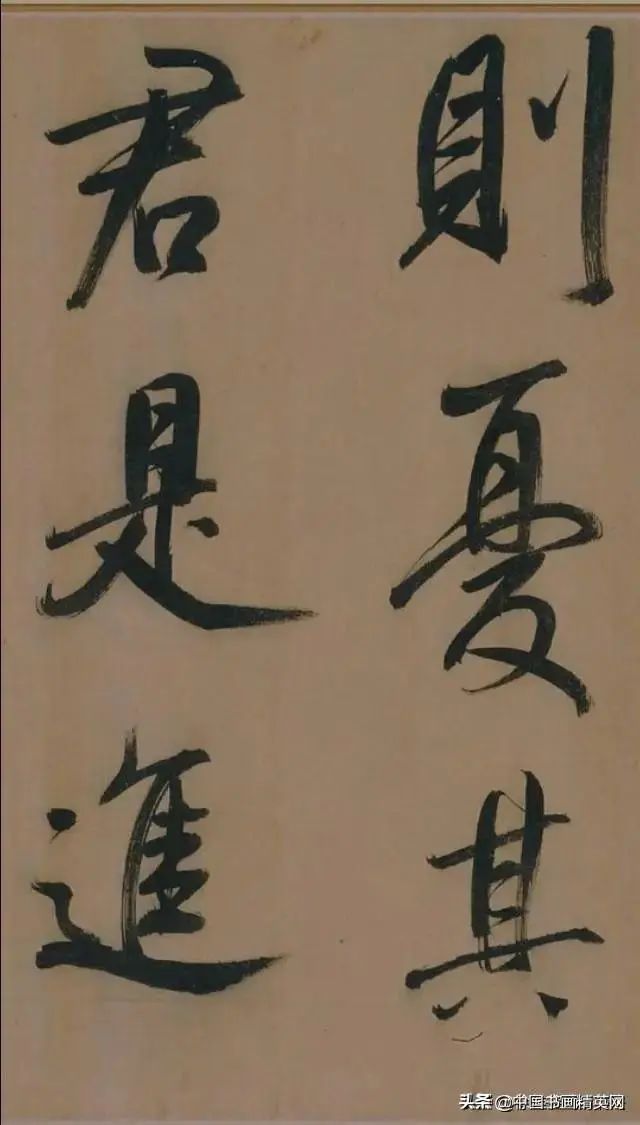 則憂其
君是進
头条 @中国书画精英网